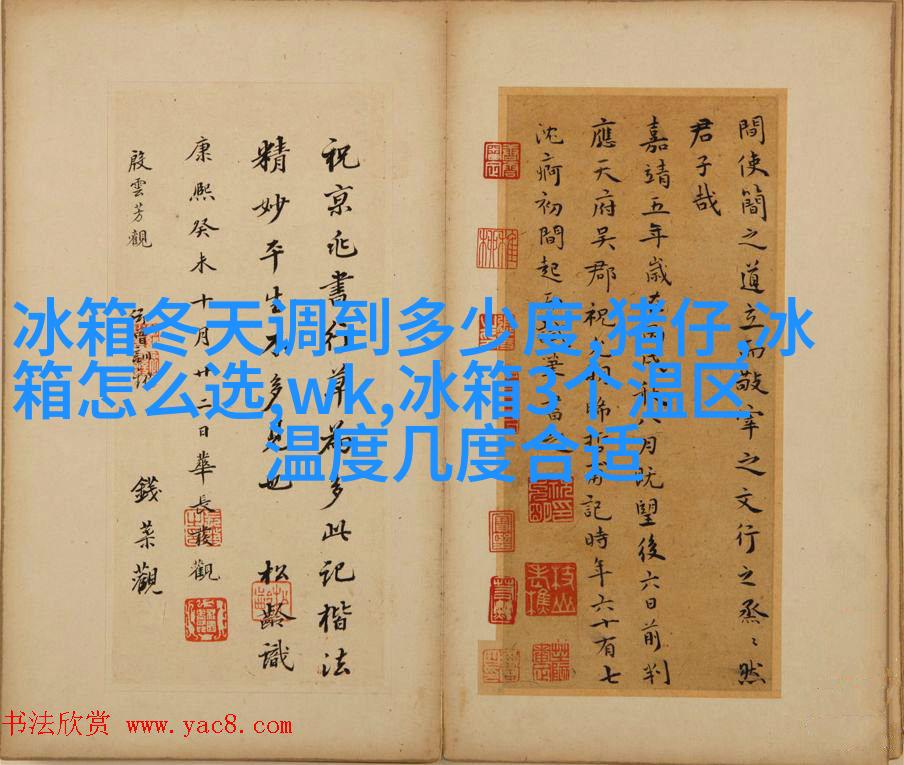 間使簡之道立而敲宰之文行之烝〻然
君子哉
嘉靖五年歲 八月既望後六日前判
應天府吳郡祝 記時年六十有七
沈痾初間起
祝京兆書行草為多此記楷法
精妙平生不多見也 松齡識
康熙癸未十月廿二日華長發觀
殷雲芳觀
錢菜觀
冰箱冬天调到多少度,猪仔,冰
箱怎么选,wk,冰箱3个温区
温度几度合适
书法欣赏 www.yac8.com